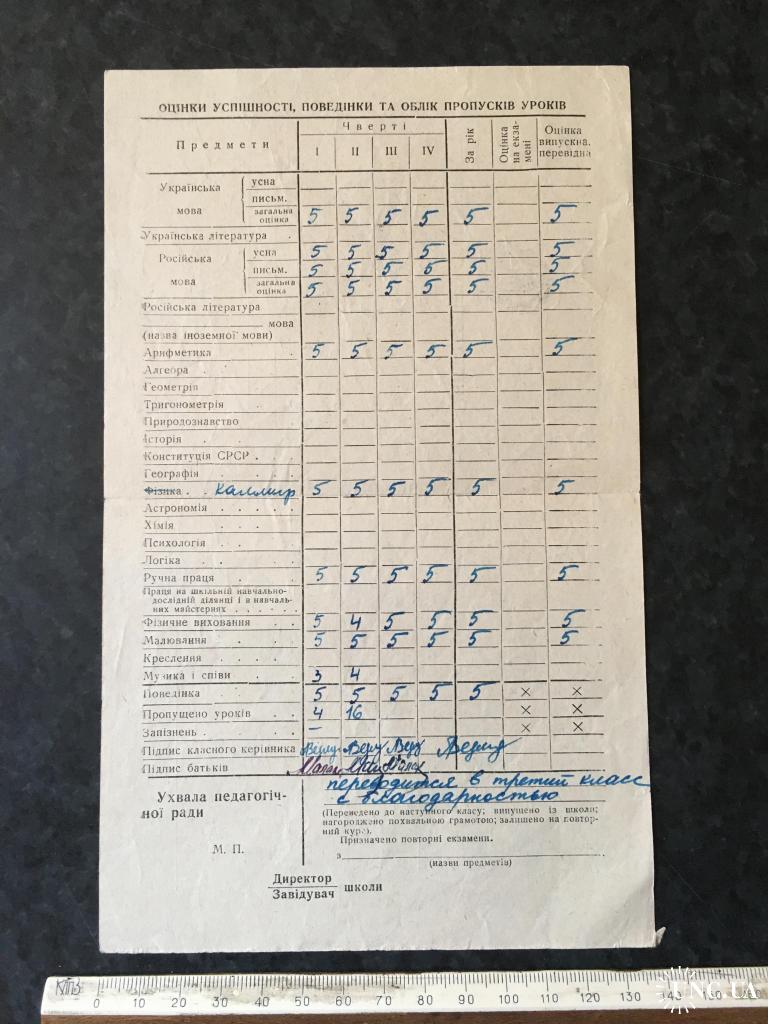 ОЦІНКИ УСПІШНОСТІ, ПОВЕДІНКИ ТА ОБЛІК ПРОПУСКІВ УРОКІВ
Предмети Чверті I II III IV За рік Оцінка на екзамені Оцінка випускна, перевідна
Українська мова усна
письм.
загальна оцінка 5 5 5 5 5 5
Українська література
Російська мова усна 5 5 5 5 5 5
письм. 5 5 5 5 5 5
загальна оцінка 5 5 5 5 5 5
Російська література
мова
(назва іноземної мови)
Арифметика 5 5 5 5 5 5
Алгебра
Геометрія
Тригонометрія
Природознавство
Історія
Конституція СРСР
Географія
Фізика каллигр 5 5 5 5 5 5
Астрономія
Хімія
Психологія
Логіка
Ручна праця 5 5 5 5 5 5
Праця на шкільній навчально-
дослідній ділянці і в навчаль-
них майстернях
Фізичне виховання 5 4 5 5 5 5
Малювання 5 5 5 5 5 5
Креслення
Музика і співи 3 4
Поведінка 5 5 5 5 5 × ×
Пропущено уроків 4 16 × ×
Запізнень – × ×
Підпис класного керівника
Підпис батьків
переводится в третий класс
с благодарностью
Ухвала педагогіч-
ної ради
(Переведено до наступного класу; випущено із школи;
нагороджено похвальною грамотою; залишено на повтор-
ний курс).
Призначено повторні екзамени.
М. П.
з
(назви предметів)
Директор
Завідувач школи
0 10 20 30 40 50 60 70 80 90 100 110 120 130 140 150 160
UNC.UA